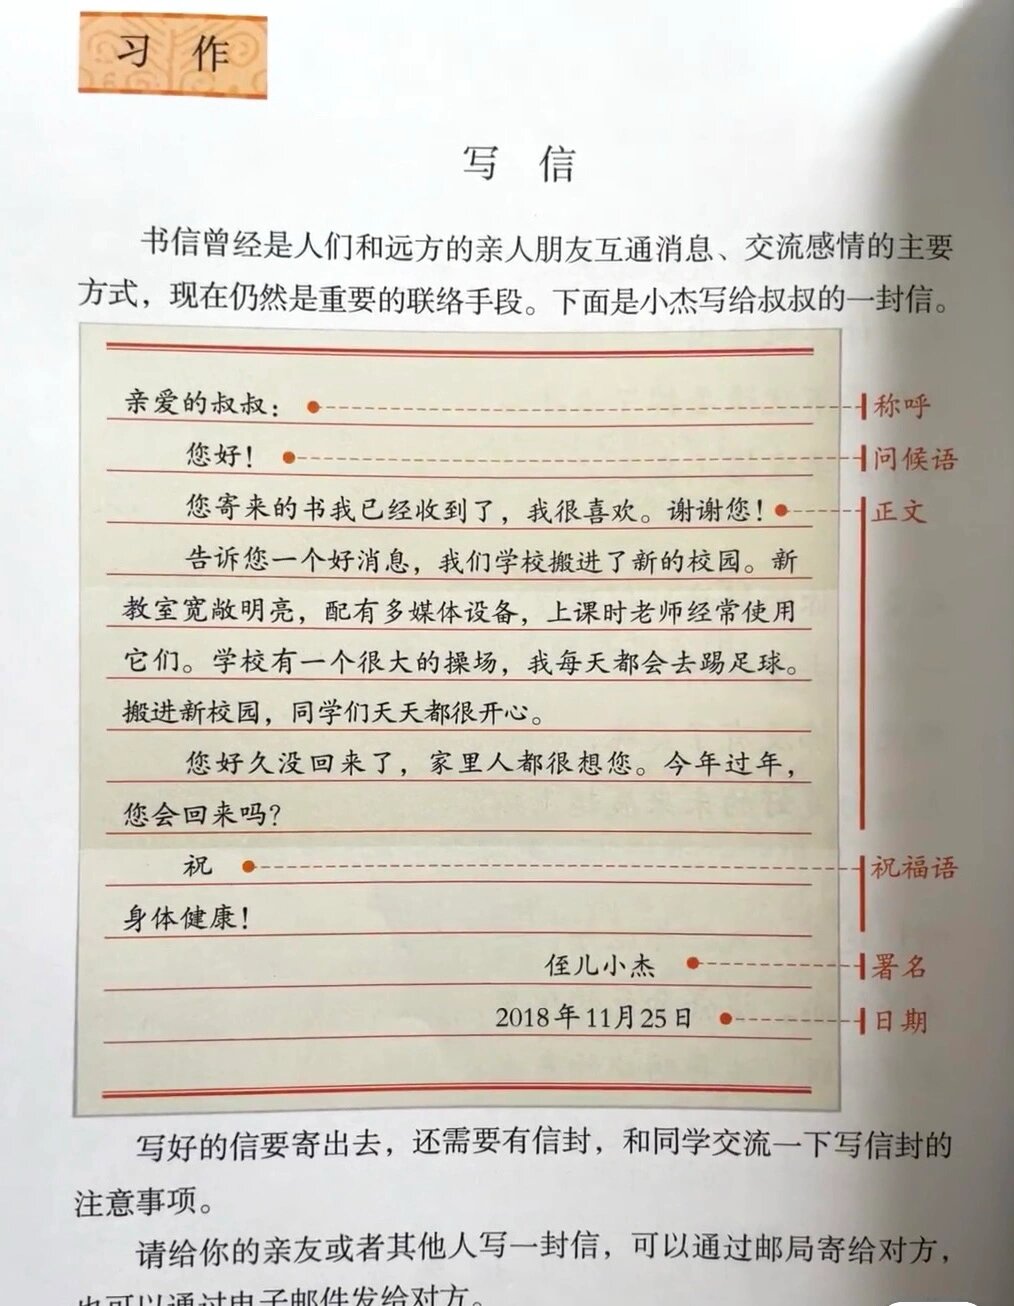 习作
写信
书信曾经是人们和远方的亲人朋友互通消息、交流感情的主要
方式，现在仍然是重要的联络手段。下面是小杰写给叔叔的一封信。
亲爱的叔叔：
称呼
您好！
问候语
您寄来的书我已经收到了，我很喜欢。谢谢您！
正文
告诉您一个好消息，我们学校搬进了新的校园。新
教室宽敞明亮，配有多媒体设备，上课时老师经常使用
它们。学校有一个很大的操场，我每天都会去踢足球。
搬进新校园，同学们天天都很开心。
您好久没回来了，家里人都很想您。今年过年，
您会回来吗？
祝
祝福语
身体健康！
侄儿小杰
署名
2018年11月25日
日期
写好的信要寄出去，还需要有信封，和同学交流一下写信封的
注意事项。
请给你的亲友或者其他人写一封信，可以通过邮局寄给对方，
也可以通过电子邮件发给对方。